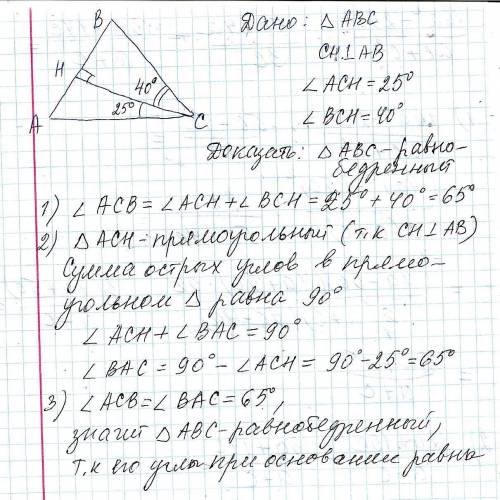 B
H
A
C
40°
25°
Дано: △ ABC
CH⊥AB
∠ACH = 25°
∠BCH = 40°
Доказать: △ ABC - равно-
бедренный
1) ∠ ACB = ∠ ACH + ∠ BCH = 25° + 40° = 65°
2) △ ACH - прямоугольный (т.к CH⊥AB)
Сумма острых углов в прямо-
угольном △ равна 90°
∠ ACH + ∠ BAC = 90°
∠ BAC = 90° - ∠ ACH = 90° - 25° = 65°
3) ∠ ACB = ∠ BAC = 65°,
значит △ ABC - равнобедренный,
т.к его углы при основании равны